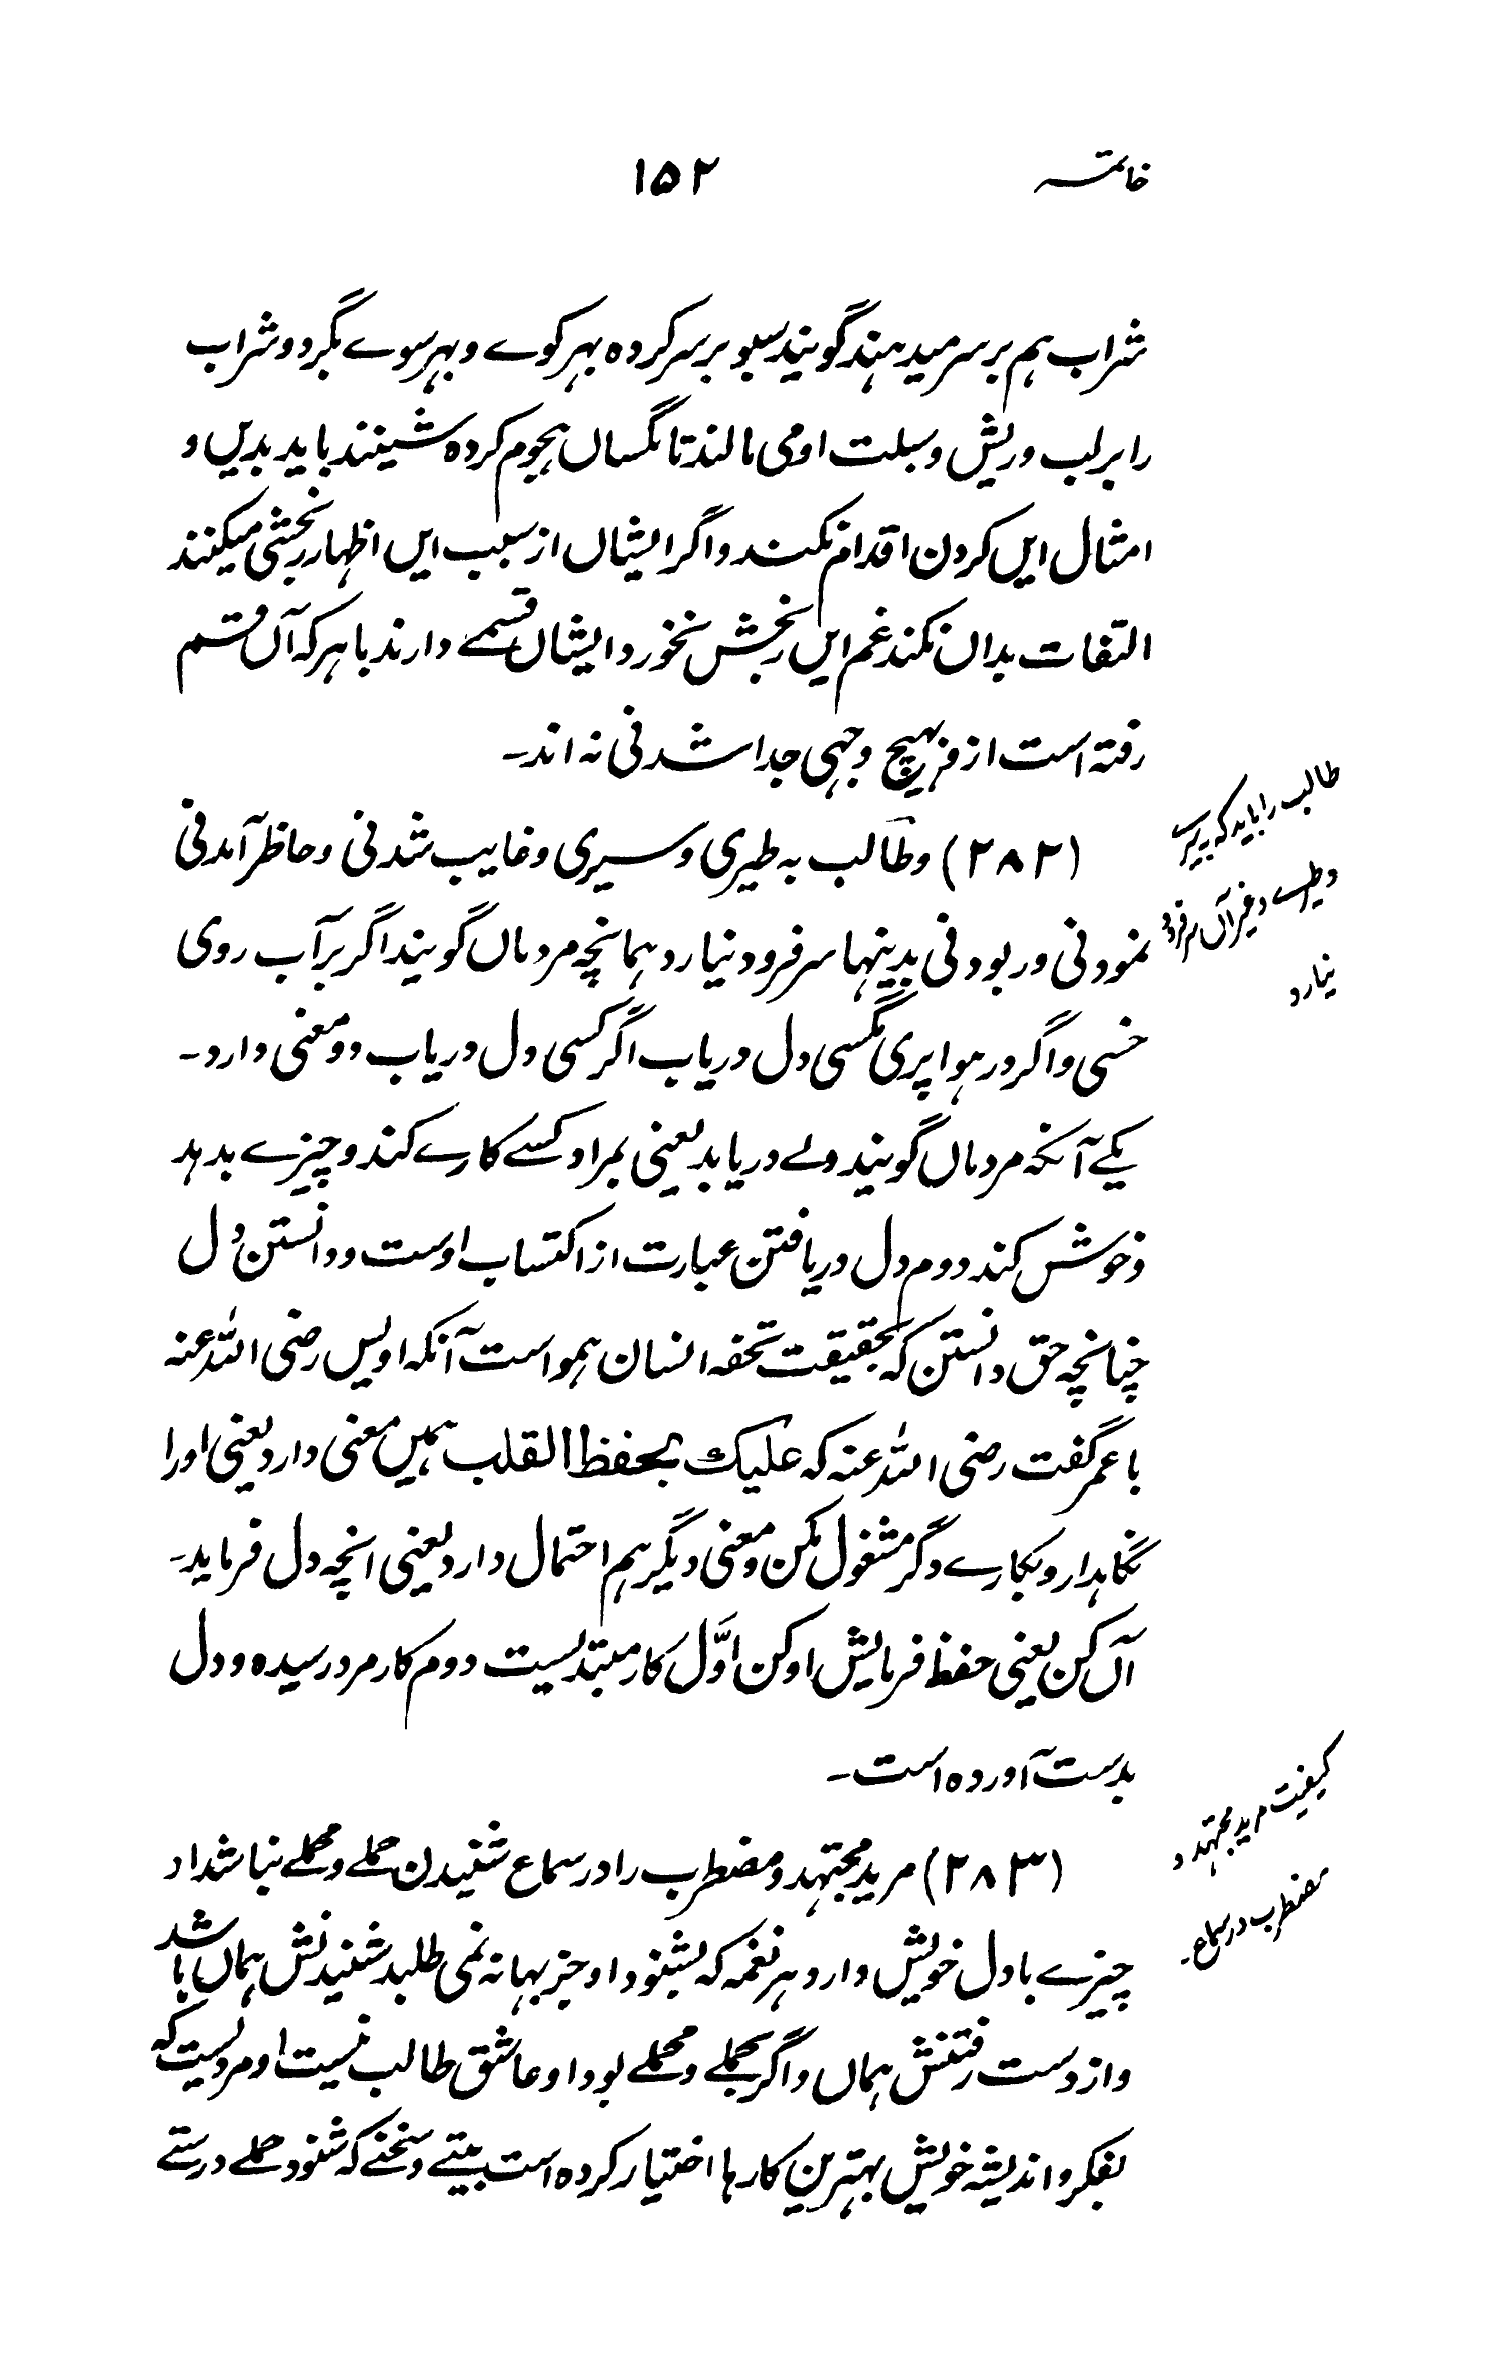 خاتمہ ۱۵۲
شراب ہم بر سر میدہند گویند سبو بر سر کردہ بہر کوے و بہر سوے بگرد و شراب
را بر لب و ریش و سبلت او می مالند تا مگساں ہجوم کردہ شینند باید بدیں و
امثال ایں کردن اقدام نکند و اگر ایشاں از سبب ایں اظہار رنجشی میکنند
التفات بداں نکند غم ایں رنجش نخورد ایشاں قسمے دارند با ہر کہ آں قسم
رفتہ است از فر بہیچ وجہی جدا شدنی نہ اند۔
(۲۸۲) و طالب بہ طیری و سیری و غایب شدنی و حاظر آمدنی
طالب را باید کہ بسیرے
و طیرے و غیر آں سر فرود
نیارد
نمودنی و ربودنی بدینہا سر فرود نیارد ہمانچہ مردماں گویند اگر بر آب روی
خسی و اگر در ہوا پری مگسی دل دریاب اگر کسی دل دریاب دو معنی دارد۔
یکے آنکہ مردماں گویند دلے دریابد یعنی بمراد کسے کارے کند و چیزے بدہد
و خوش کند دوم دل دریافتن عبارت از اکتساب اوست و دانستن دل
چنانچہ حق دانستن کہ بحقیقت تحفہ انسان ہمو است آنکہ اویس رضی اللہ عنہ
با عمر گفت رضی اللہ عنہ کہ علیک بحفظ القلب ہمیں معنی دارد یعنی او را
نگاہدار و بکارے دگر مشغول مکن و معنی دیگر ہم احتمال دارد یعنی انچہ دل فرماید۔
آں کن یعنی حفظ فرمایش او کن اوّل کار مبتدیست دوم کار مرد رسیدہ و دل
بدست آوردہ است۔
(۲۸۳) مرید مجتہد و مضطرب را در سماع شنیدن حملے و محملے نباشد او
کیفیت مرید مجتہد و
مضطرب در سماع۔
چیزے با دل خویش دارد ہر نغمہ کہ بشنود او جز بہانہ نمی طلبد شنیدنش ہماں باشد
و از دست رفتنش ہماں و اگر بحملے و محملے بود او عاشق طالب نیست او مردیست کہ
بفکر و اندیشہ خویش بہترین کارہا اختیار کردہ است بیتے و سخنے کہ شنود حملے درستے